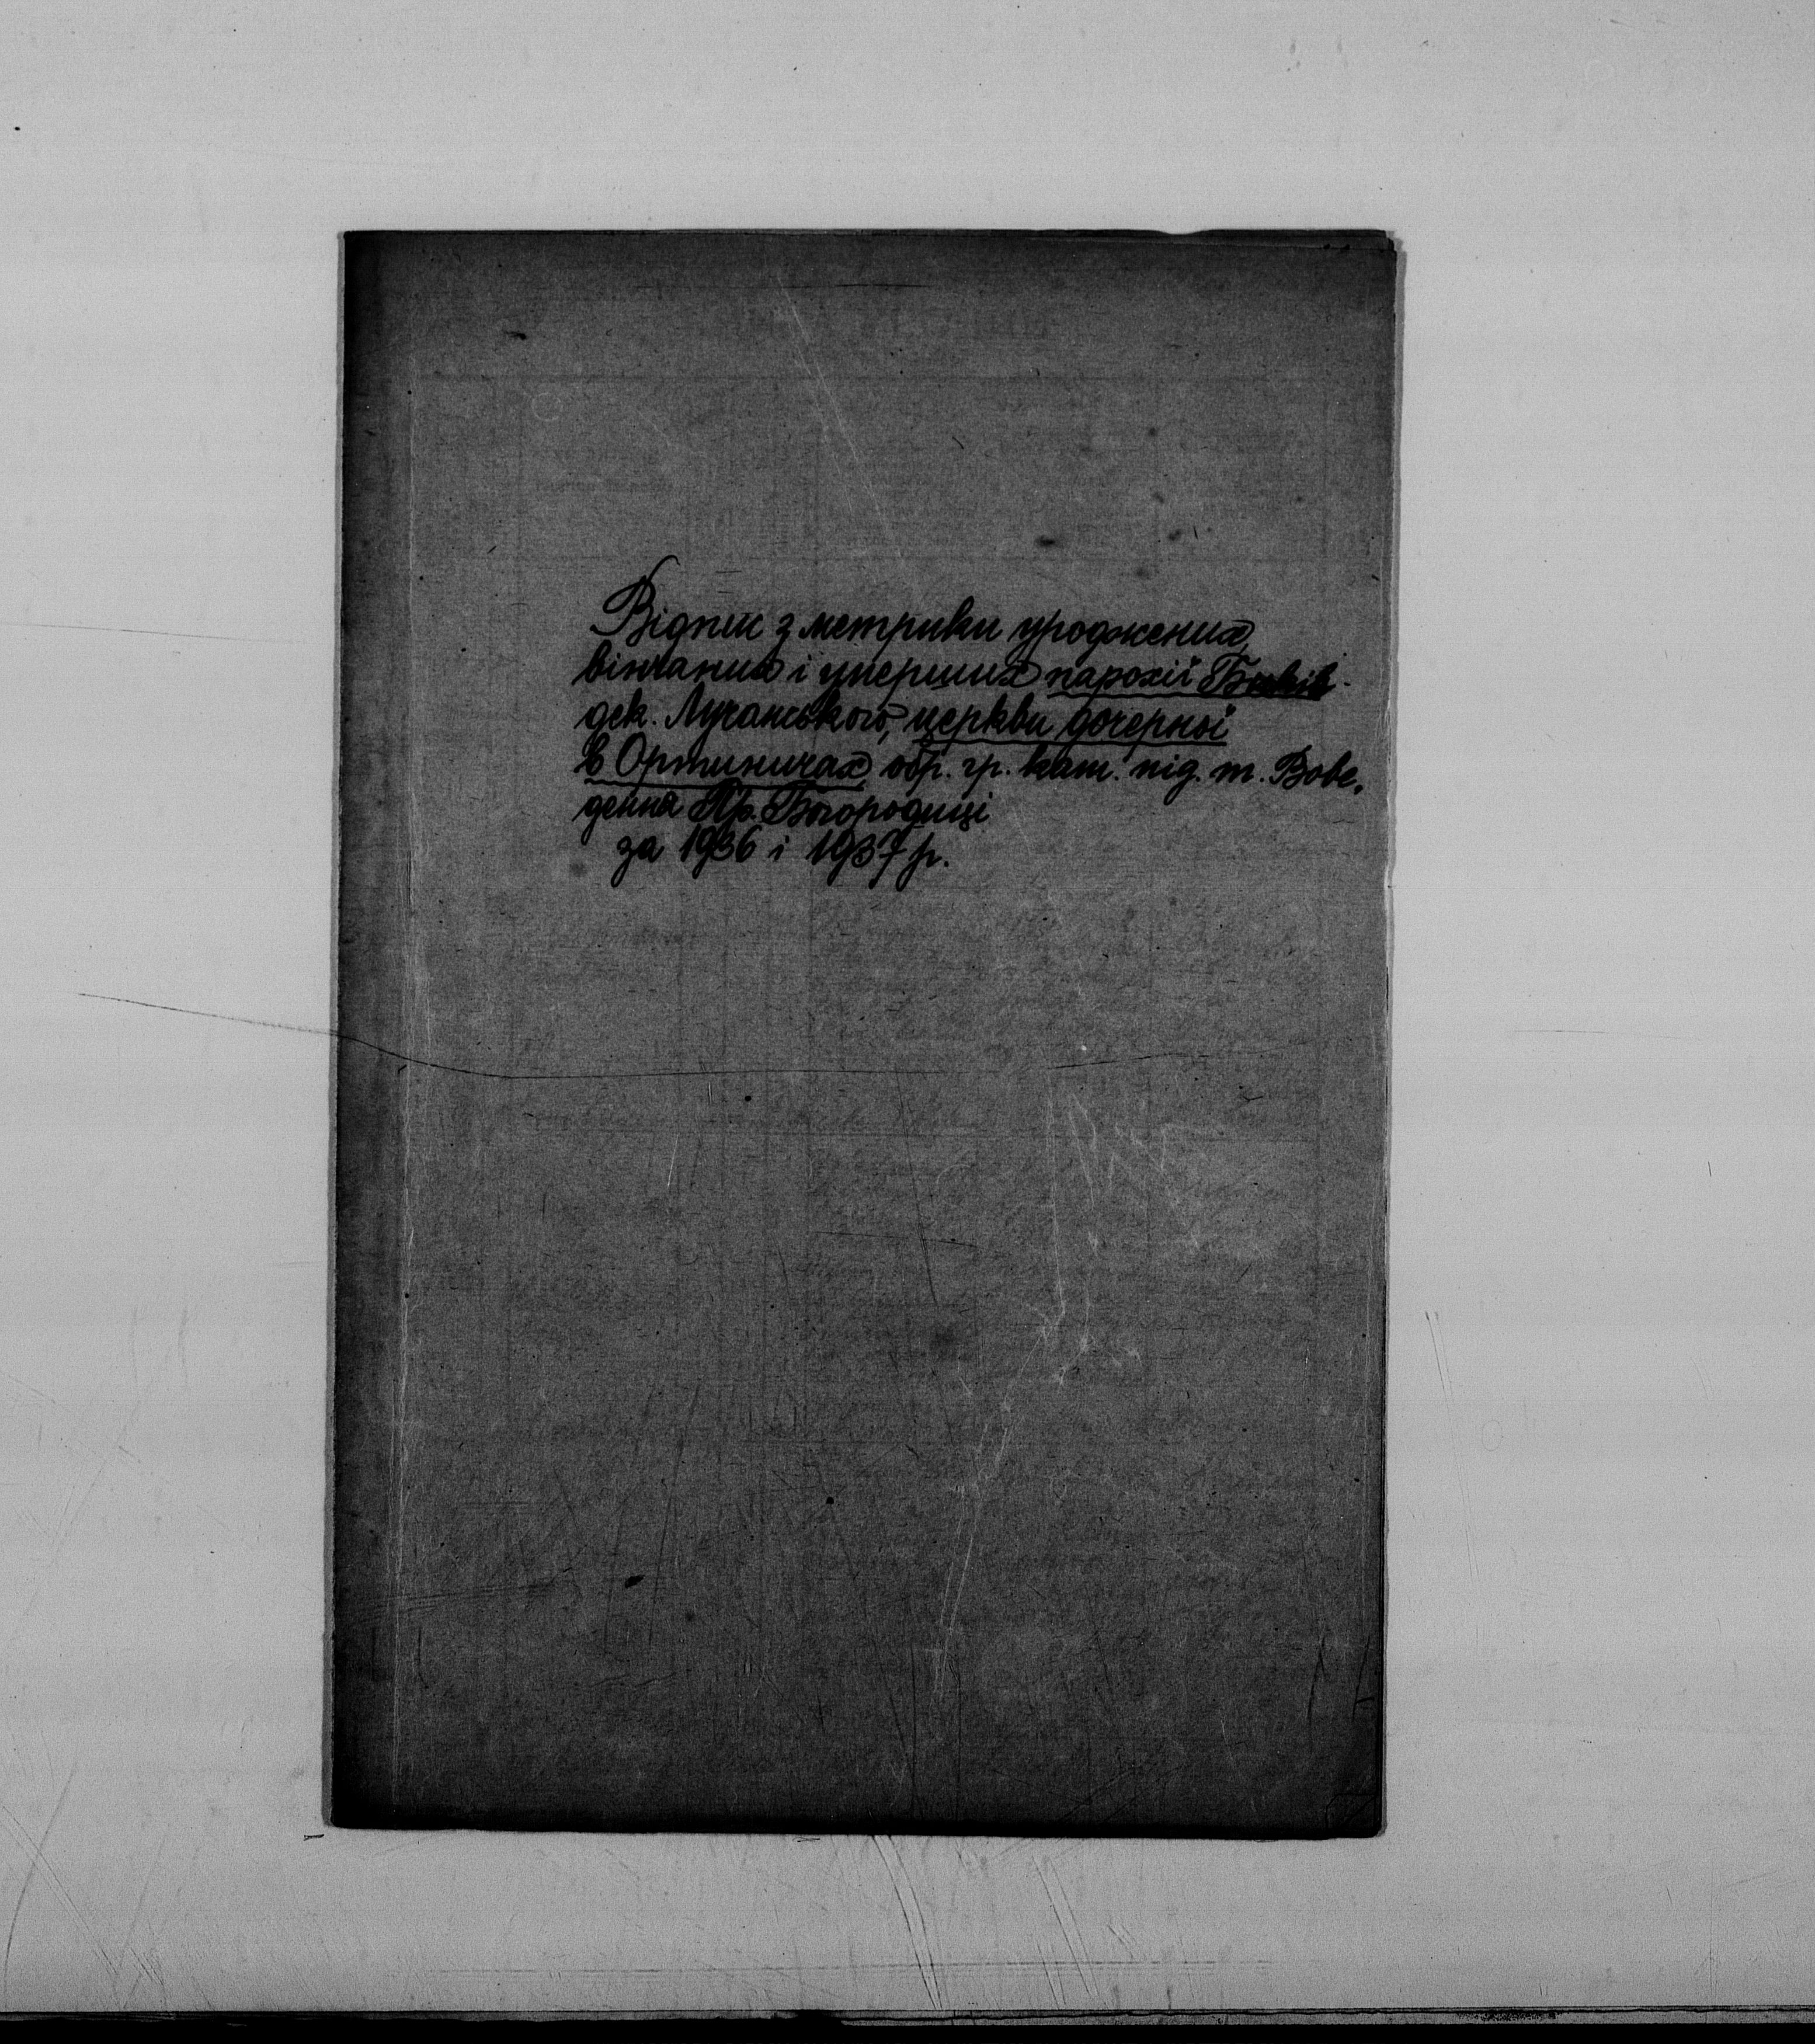 Відпис з метрики уроджених,
вінчаних і умерших парохії Биків
дек. Лучанського, церкви дочерньої
в Ортиничах, обр. гр. кат. під. т. Вове.
дення Пр. Богородиці
за 1936 і 1937 р.